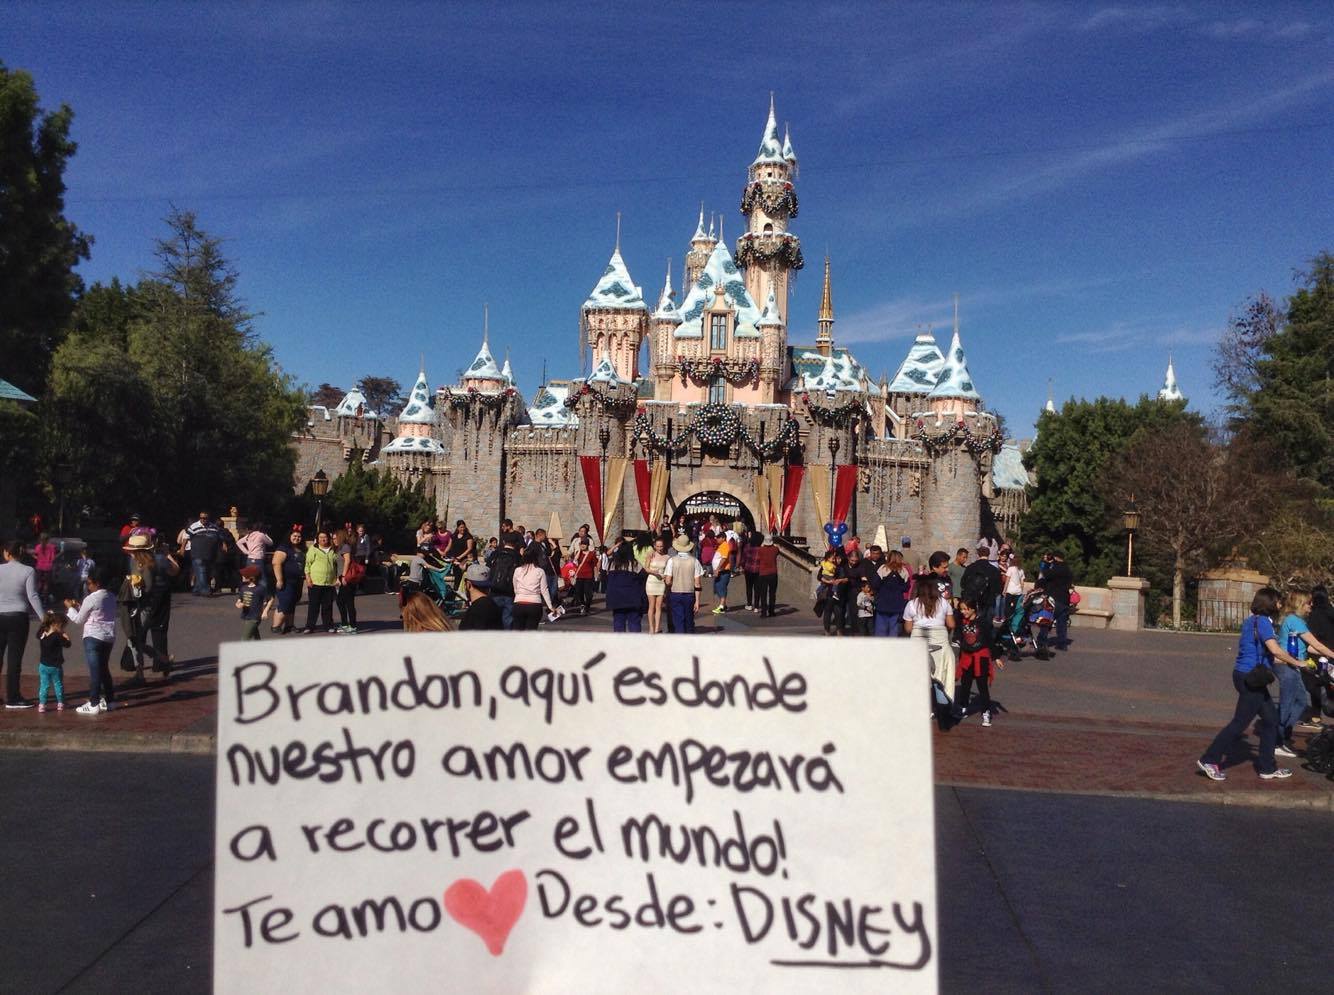 Brandon, aquí es donde
nuestro amor empezará
a recorrer el mundo!
Te amo Desde: DISNEY